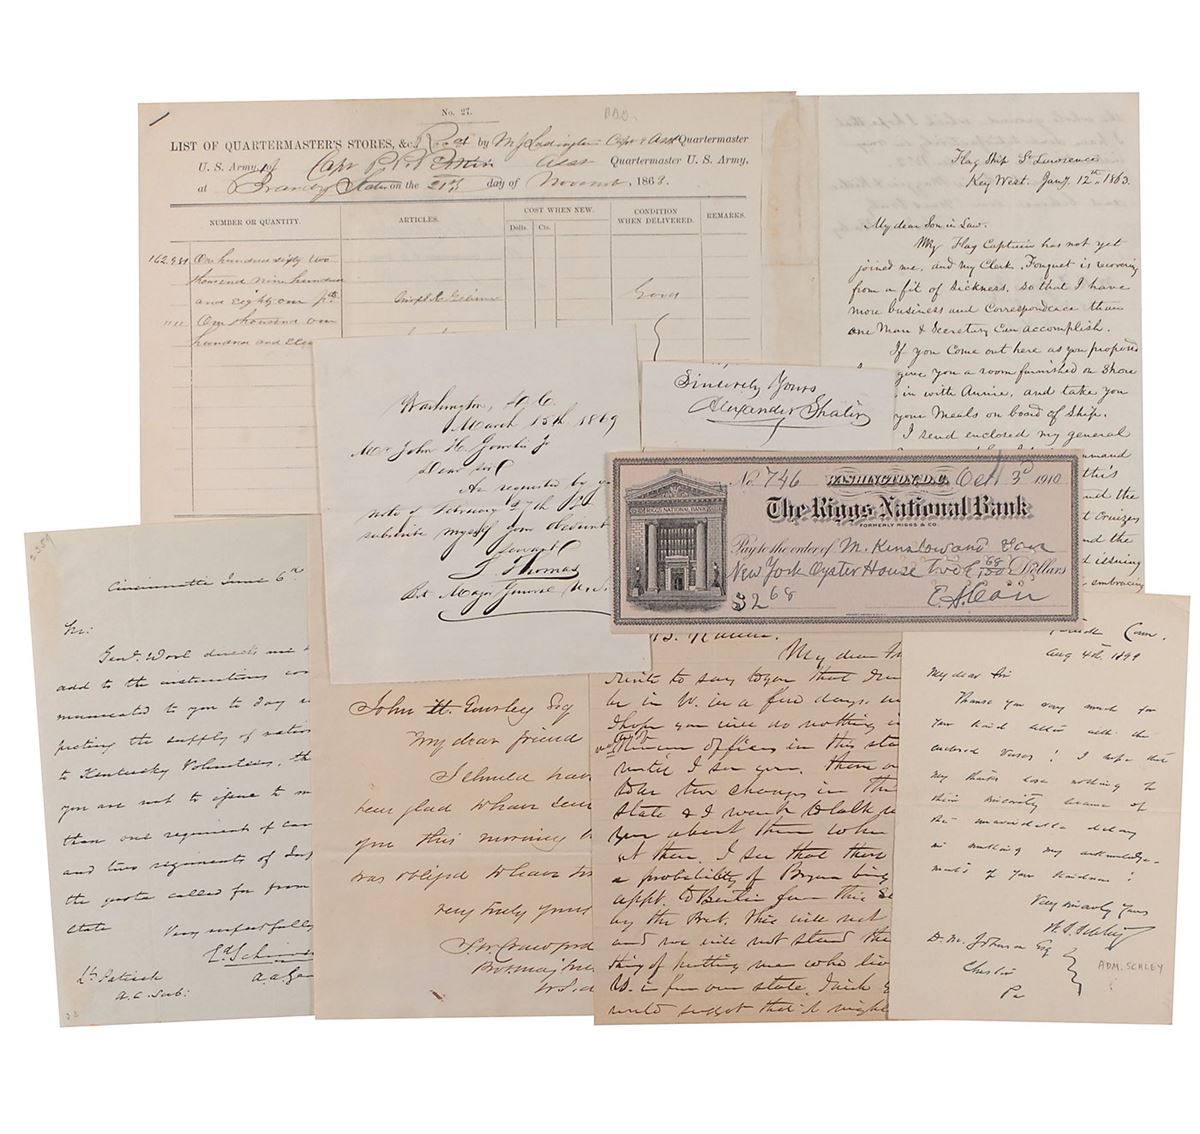 No. 27.
LIST OF QUARTERMASTER'S STORES, &c., Rec'd by M. I. Ludington Capt & Asst Quartermaster
U. S. Army, of Capt Asst Quartermaster U. S. Army,
at Brandy Station on the 21st day of November, 1863.
NUMBER OR QUANTITY. ARTICLES. COST WHEN NEW. CONDITION WHEN DELIVERED. REMARKS.
Dolls. Cts.
162.981 One hundred sixty two
thousand nine hundred
and eighty one Good
1111 One thousand one
hundred and
Flag Ship St Lawrence
Key West. Jany. 12th 1863.
My dear Son in Law.
My Flag Captain has not yet
joined me, and my Clerk, Fouquet is recovering
from a fit of Sickness, so that I have
more business and Correspondence than
one Man & Secretary Can accomplish.
If you Come out here as you proposed
give you a room furnished on Shore
in with Annie, and take you
your Meals on board of Ship.
I send enclosed my general
and the
Cruizers
and the
issuing
embracing
Washington, D.C.
March 15th 1869
Mr John H. Gourlie Jr
Dear Sir
As requested by
note of February 27th
subscribe myself your obedient
servant
G Thomas
Bvt Major General
Sincerely Yours
Alexander Shaler
No. 746 WASHINGTON, D.C. Oct 3d 1910
The Riggs National Bank
FORMERLY RIGGS & CO.
RIGGS NATIONAL BANK
Pay to the order of
New York Oyster House two & 68/100 Dollars
$2 68
Cincinnati June 6th
Sir:
Genl. Wool directs me
add to the instructions com
municated to you to day
pecting the supply of
to Kentucky Volunteers, th
you are not to issue to m
than one regiment of
and two regiments of Inf
the quota called for from
State
Very respectfully
Lt Patrick
A.C. Sub:
John H. Gourley Esq
My dear friend
I should have
been glad to have seen
you this morning
was obliged to have
very truly yours
S. W. Crawford
My dear
write to say to you that I
be in W. in a few days,
I hope you will do nothing
officers in this sta
until I see you. There
two changes in the
State & I want to talk
you about them when
there. I see that there
a probability of being
appt. to Berlin from this
by the Pres. This will not
and we will not stand the
thing of putting men who live
W. in from our state. I
would suggest that it might
Conn.
Aug 4th, 1899
My dear Sir
Thank you very much for
your kind letter with the
enclosed verses! I hope that
my thanks lose nothing in
their sincerity because of
the unavoidable delay
in making my acknowledge-
ments of your kindness!
Very sincerely Yours
W. S. Schley
D. M. Johnson Esq
Chester
Pa
ADM. SCHLEY